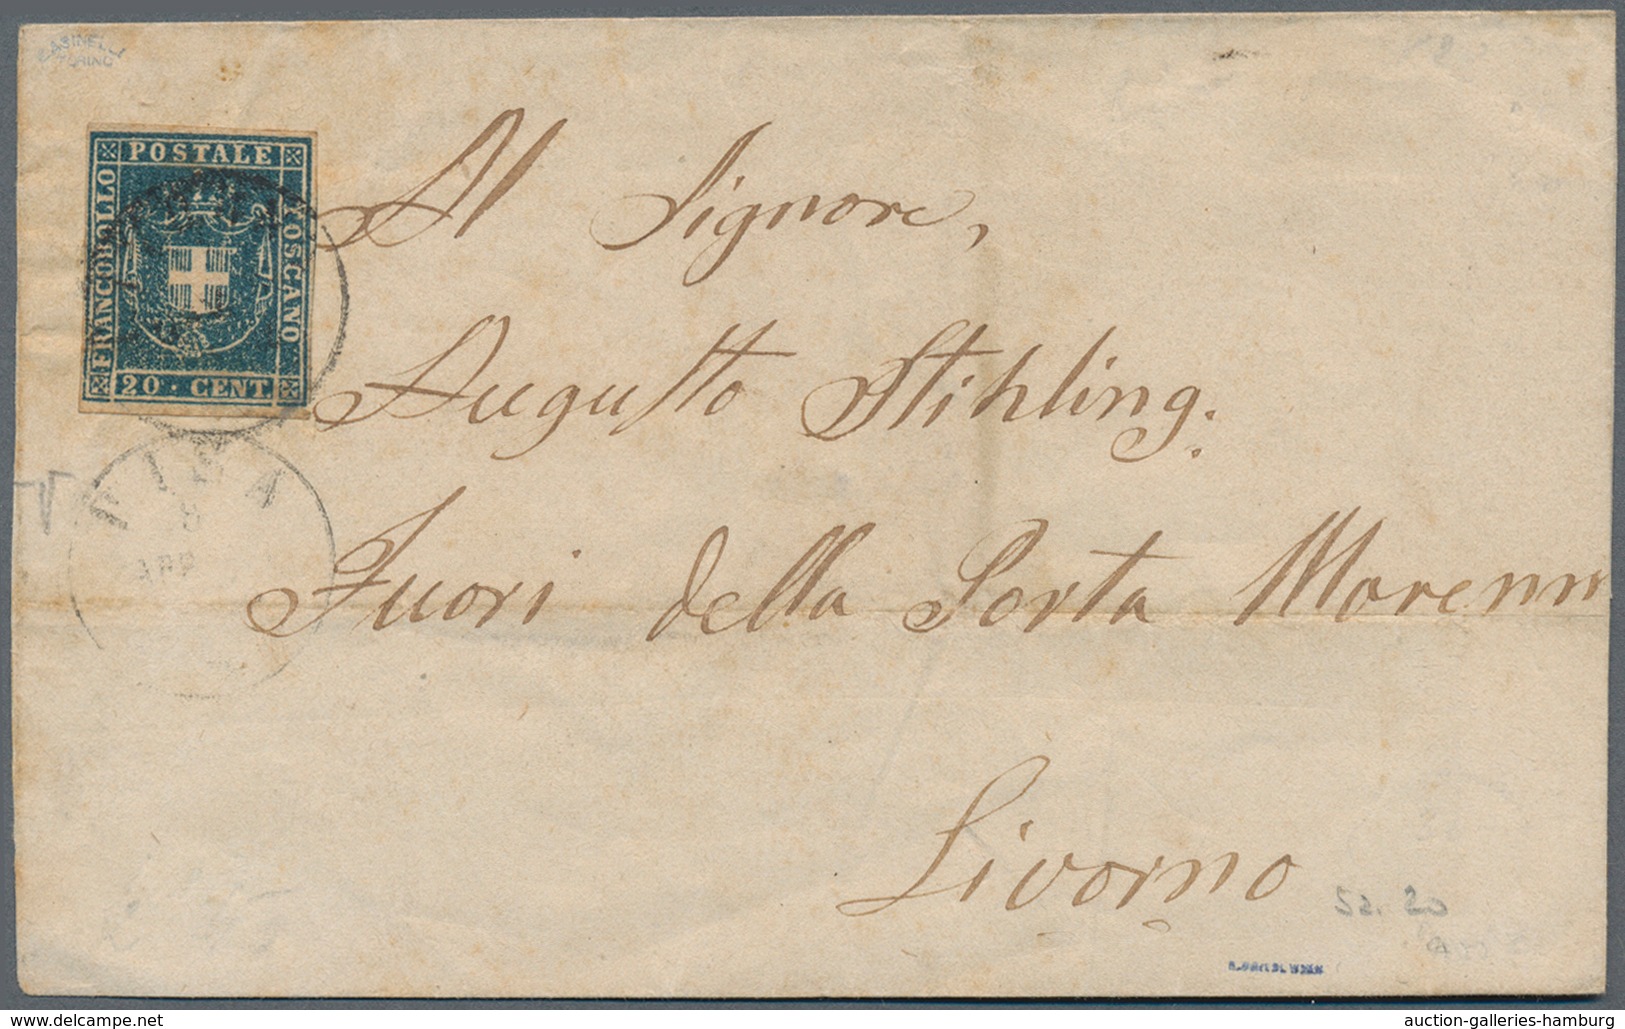 CASINELLI
TORINO
FRANCOBOLLO
POSTALE
TOSCANO
20 · CENT.
Al Signore,
Augusto Stihling.
PISA
8
APR
Fuori della Porta Morenn
Livorno
Sa. 20
www.delcampe.net
auction-galleries-hamburg